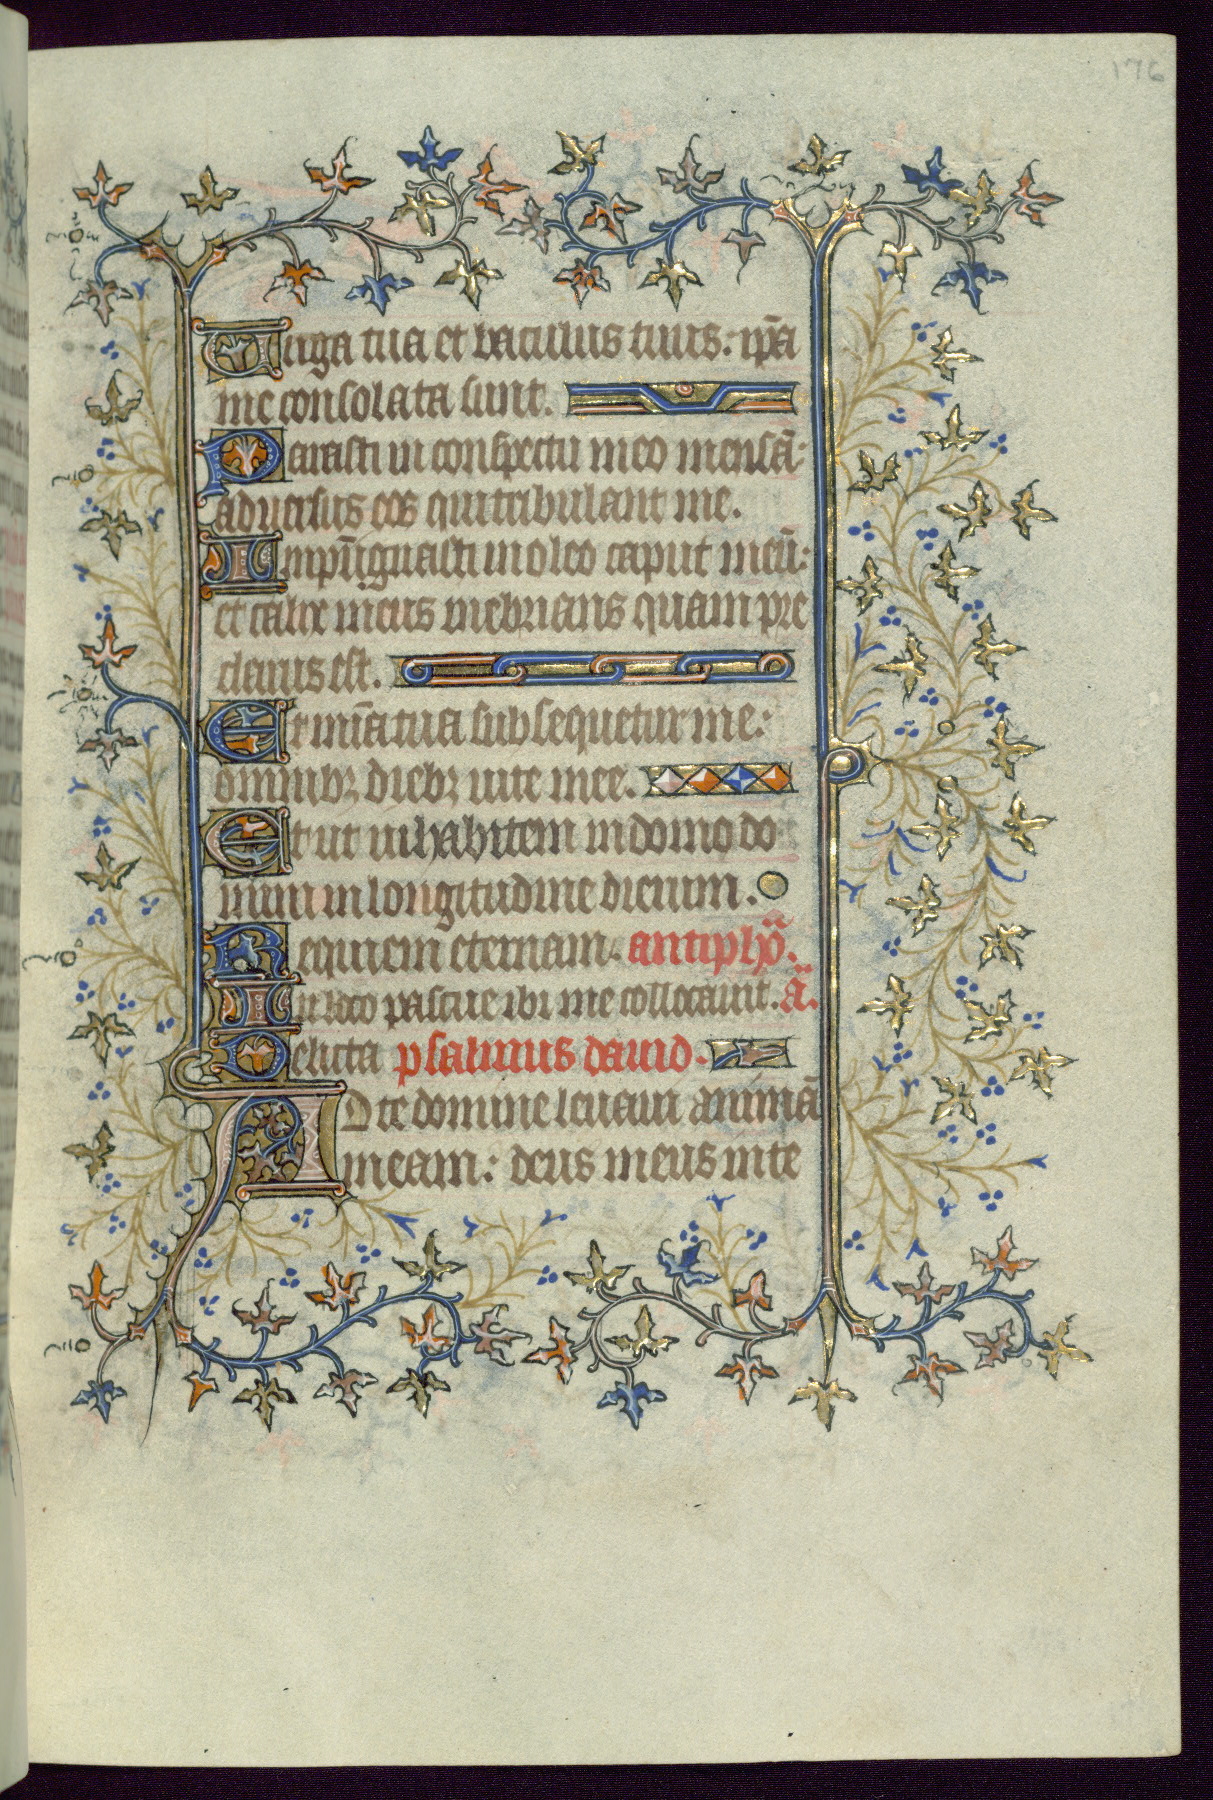 176
Uirga tua et baculus tuus: ip̄a
me consolata sunt.
Parasti in conspectu meo mensā:
aduersus eos qui tribulant me.
Inpīguasti in oleo caput meū:
et calix meus inebrians quam pre
clarus est.
Et mīa tua subsequetur me:
omnibꝫ diebꝫ uite mee.
Et ut inhabitem in domo do
mini in longitudine dierum.
Requiem eternam. antiphō.
In loco pascue ibi me collocauit. ā.
Delicta psalmus dauid.
AD te domine leuaui animā
meam: deus meus in te